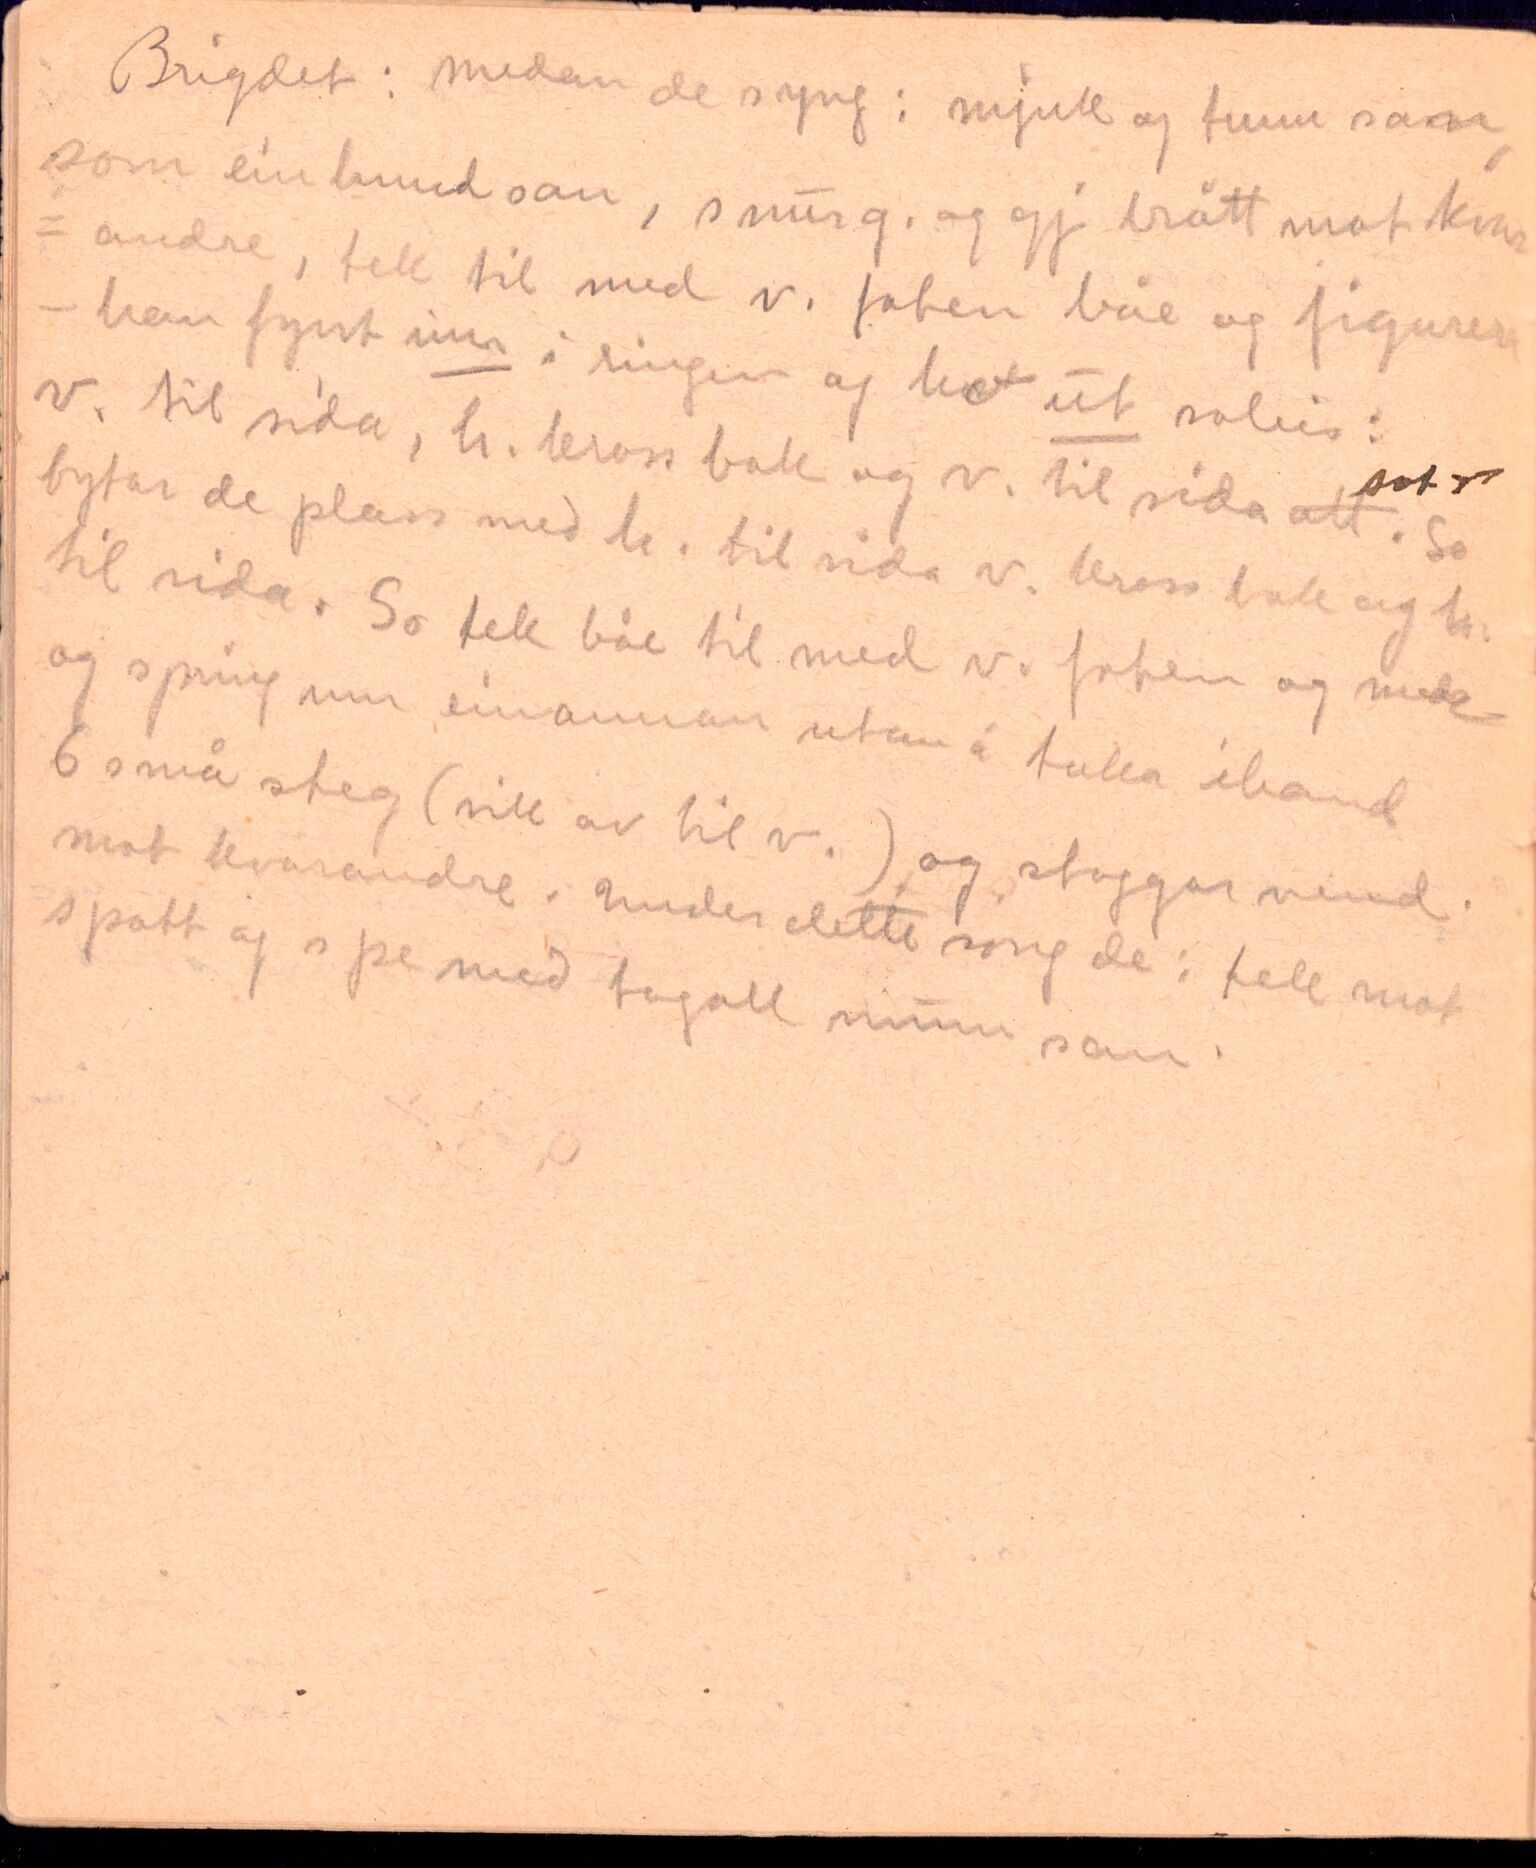 Brigdet: medan de syng: mjuk og tunn som,
som ein hund san, snur q. og gj brått mot kvar
= andre, tek til med v. foten båe og figurer
- han fyrst inn i ringen og ho ut soleis:
v. til sida, h. kross bak og v. til sida att. So
bytar de plass med h. til sida v. kross bak og h.
til sida. So tek båe til med v. foten og
og spring um einannan utan å taka ihand
6 små steg (sik av til v.) og stoggar vend.
mot kvarandre. Under dette song de: tek mot
spott og spe med togall munn san.